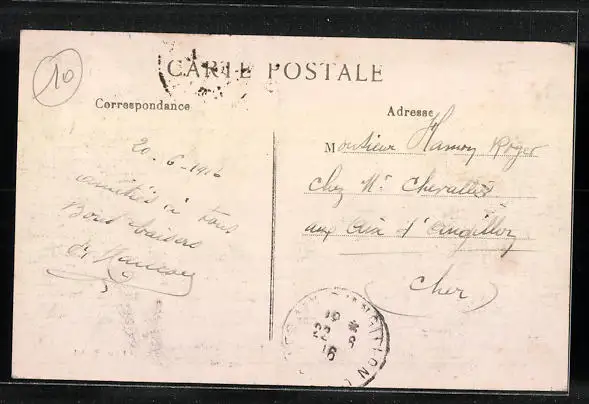 10
CARTE POSTALE
Correspondance
Adresse
20-6-1916
amitiés à tous
Bons baisers
Monsieur Hamon Roger
chez Mr Chevallier
aux Aix d'Angillon
(Cher)
19 *
22 - 6
16